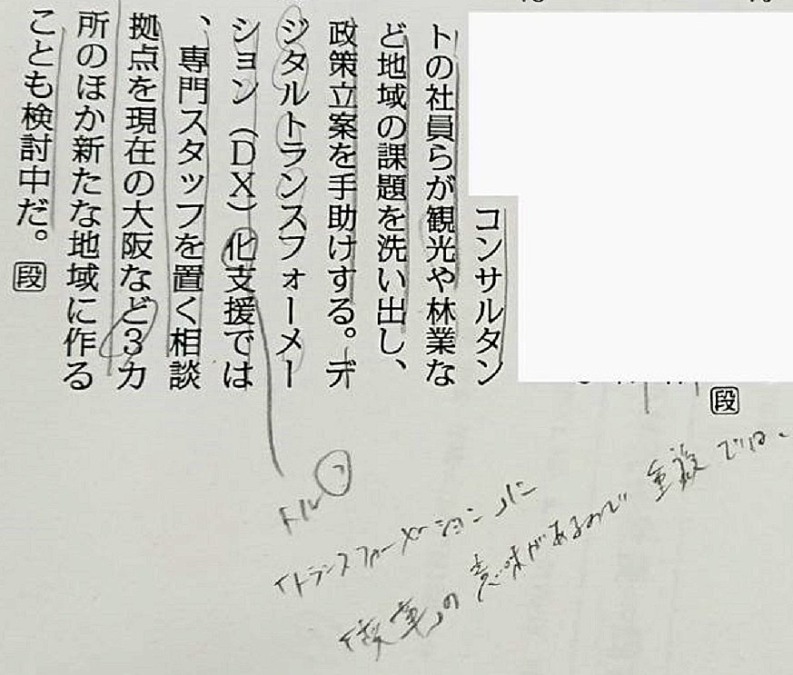 コンサルタン
トの社員らが観光や林業な
ど地域の課題を洗い出し、
政策立案を手助けする。デ
ジタルトランスフォーメー
ション（ＤＸ）化支援では
、専門スタッフを置く相談
拠点を現在の大阪など３カ
所のほか新たな地域に作る
ことも検討中だ。段
段
トル？
「トランスフォーメーション」に
「変革」の意味があるので重複では、